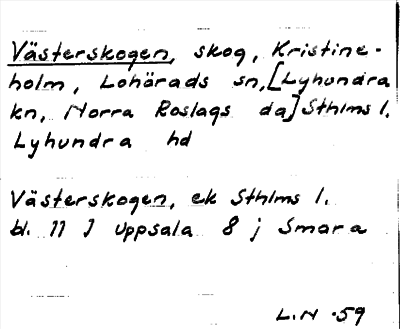 Västerskogen, skog, Kristine-
holm, Lohärads sn, [Lyhundra
kn, Norra Roslags da] Sthlms l.
Lyhundra hd
Västerskogen, ek Sthlms l.
bl. 11 J Uppsala 8 j Smara
L.N -59